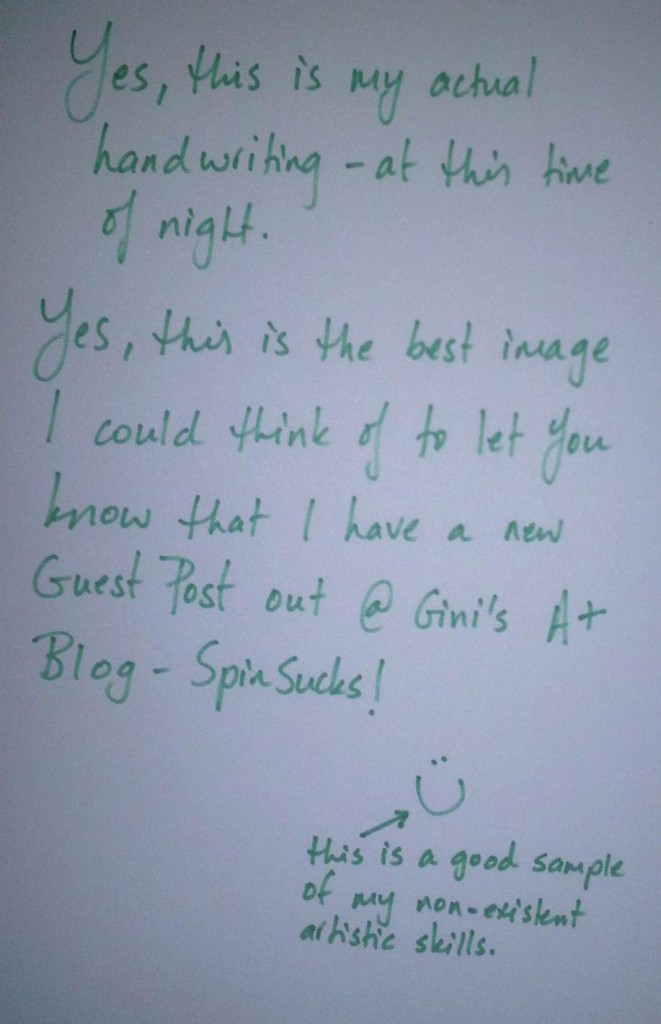 Yes, this is my actual
handwriting - at this time
of night.
Yes, this is the best image
I could think of to let you
know that I have a new
Guest Post out @ Gini's A+
Blog - SpinSucks!
this is a good sample
of my non-existent
artistic skills.